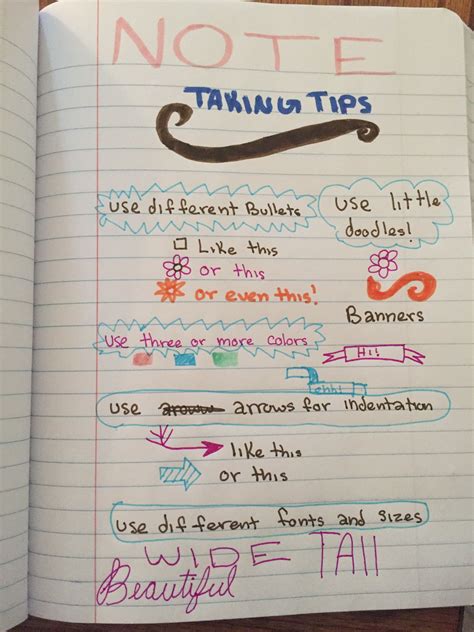 NOTE
TAKING TIPS
use different Bullets
□ Like this
or this
or even this!
use little
doodles!
Banners
Hi!
ehh!
use three or more colors
use arrows for indentation
like this
or this
use different fonts and sizes
WIDE TAll
Beautiful